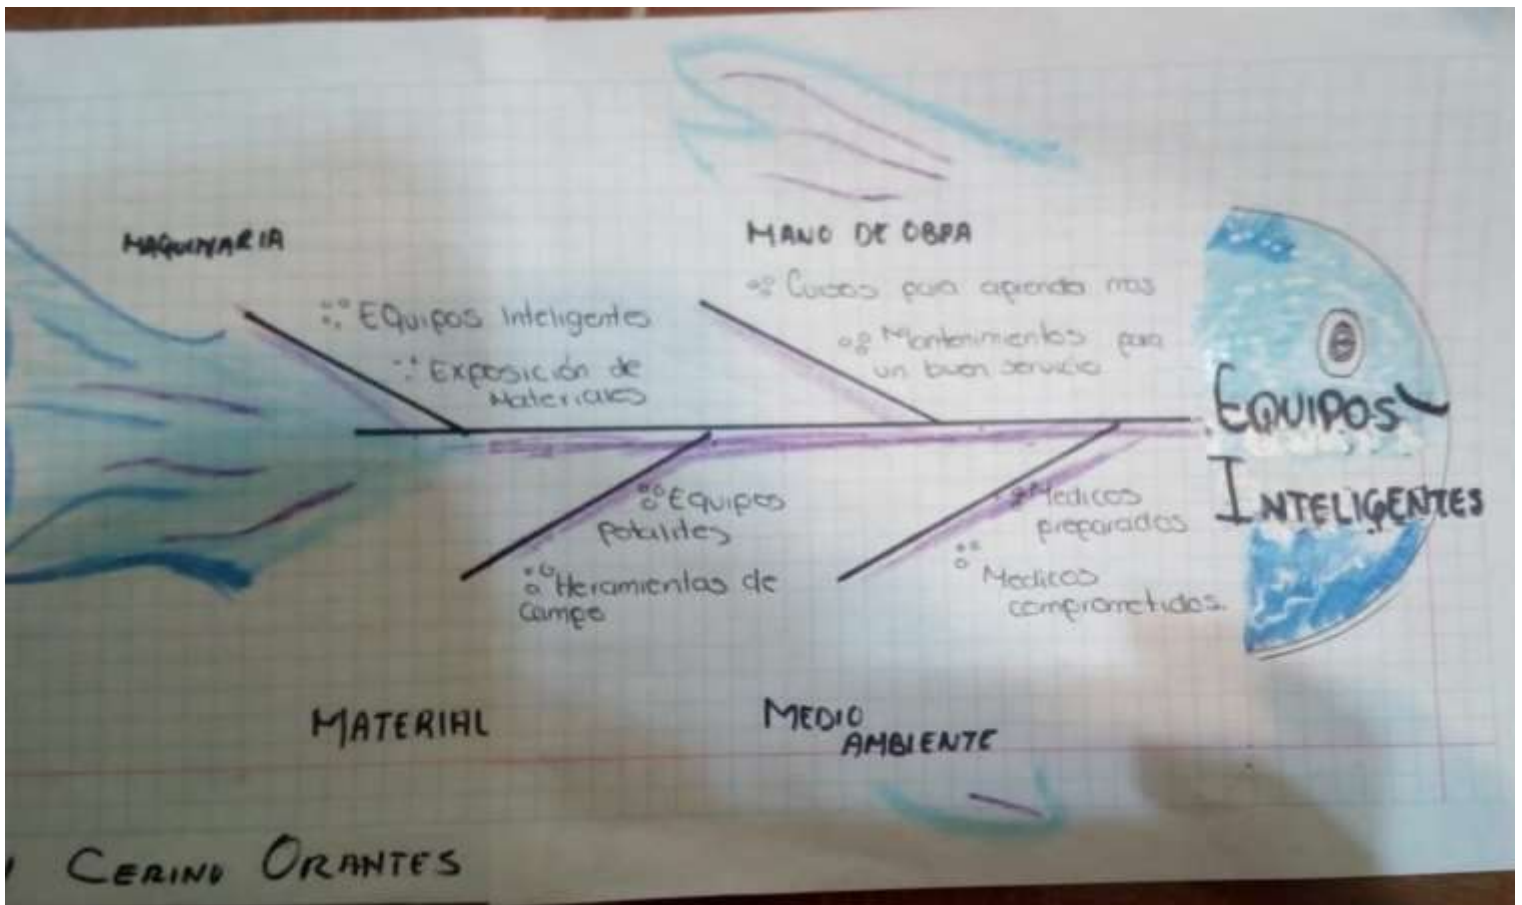 MAQUINARIA
Equipos Inteligentes
Exposición de
Materiales
MANO DE OBRA
Cursos para aprender mas
Mantenimientos para
un buen servicio
EQUIPOS
INTELIGENTES
Equipos
Heramientas de
Campo
MATERIAL
Medicos
preparados
Medicos
comprometidos.
MEDIO
AMBIENTE
CERINO ORANTES